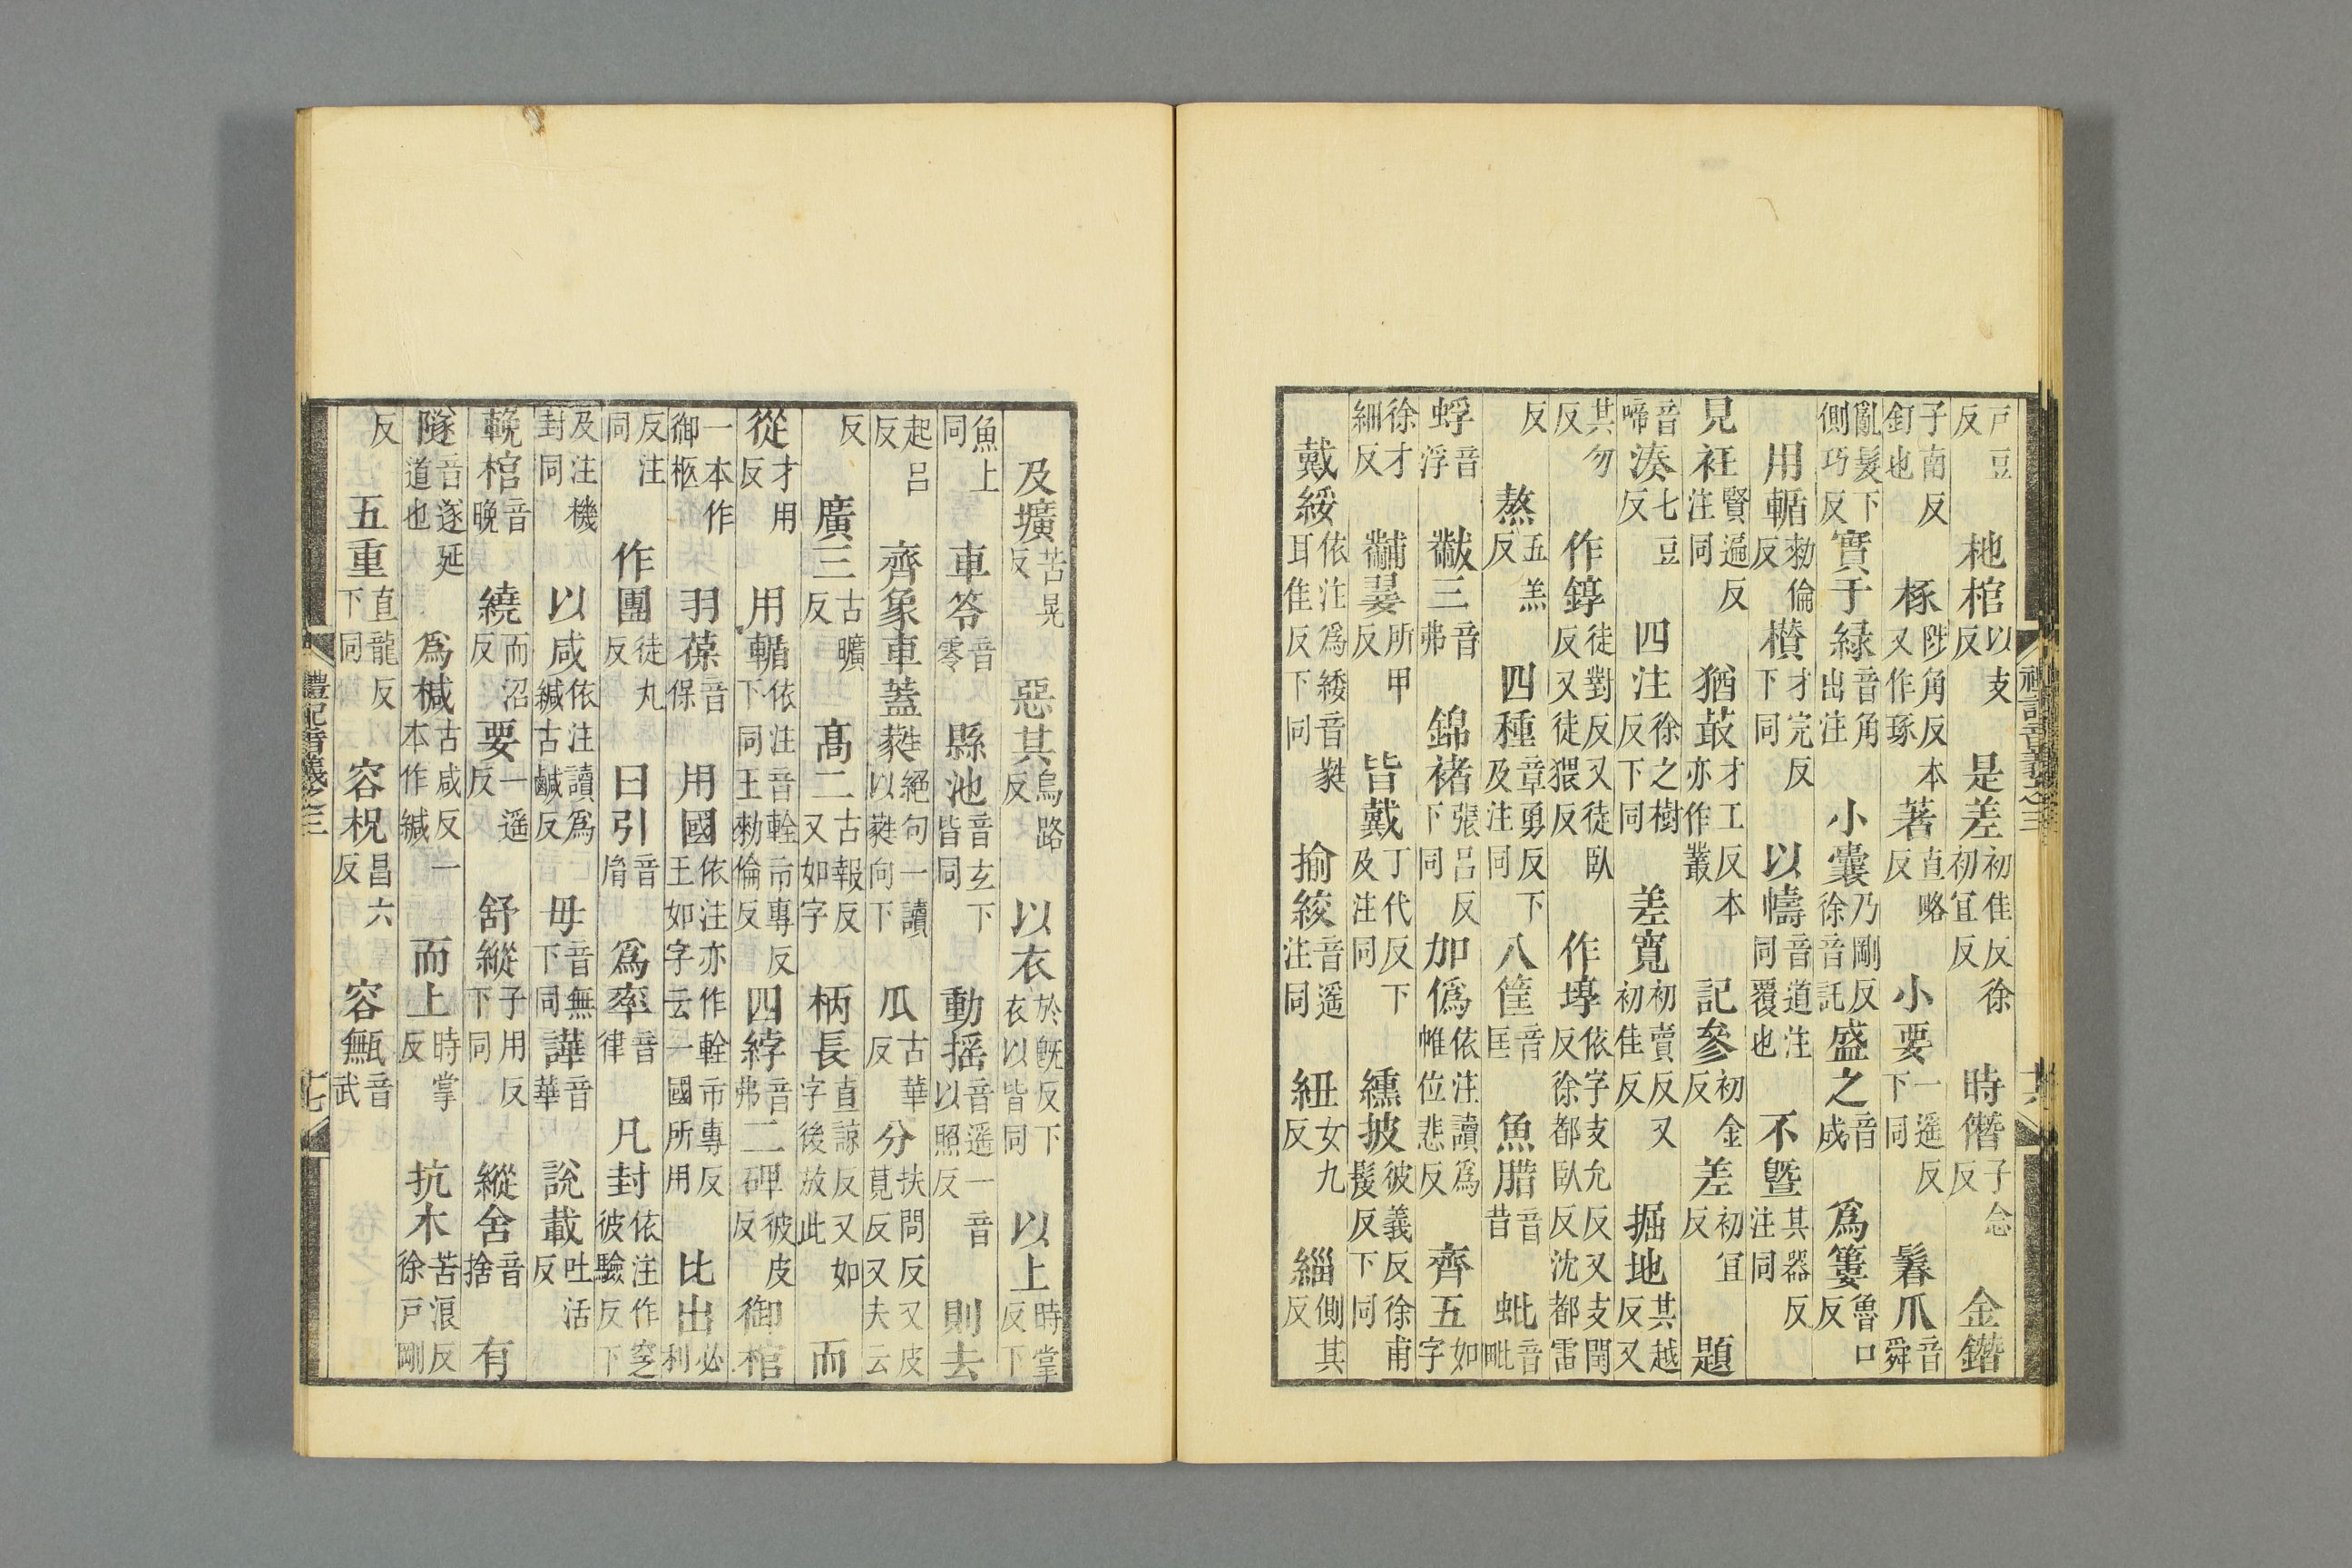 戶豆反　杝棺以支反　是差初佳反徐初宜反　時僭子念反　金鐕
子南反釘也　椓陟角反本又作琢　著直略反　小要一遥反下同　鬊爪音舜
亂髮下側巧反　實于緑音角出注　小囊乃剛反徐音託　盛之音成　爲簍魯口反
用輴勑倫反　欑才完反下同　以幬音道注同覆也　不曁其器反注同
見衽賢遍反注同　猶菆才工反本亦作叢　記參初金反　差初宜反　題
音啼　湊七豆反　四注徐之樹反下同　差寬初賣反又初佳反　掘地其越反又
其勿反　作錞徒對反又徒猥反又徒臥反　作埻依字支允反徐都臥反又支閏反沈都雷
反　熬五羔反　四種章勇反下及注同　八筐音匡　魚腊音昔　蚍音毗
蜉音浮　黻三音弗　錦褚張呂反下同　加僞依注讀爲帷位悲反　齊五如字
徐才細反　黼翣所甲反　皆戴丁代反下及注同　纁披彼義反徐甫髲反下同
戴綏依注爲緌音蕤耳佳反下同　揄絞音遥注同　紐女九反　緇側其反
禮記音義之三　十六
及壙苦晃反　惡其烏路反　以衣於旣反下衣以皆同　以上時掌反下
魚上同　車笭音零　縣池音玄下皆同　動摇音遥一音以照反　則去
起呂反　齊象車蓋蕤絕句一讀以蕤向下　瓜古華反　分扶問反又皮莧反又夫云
反　廣三古曠反　髙二古報反又如字　柄長直諒反又如字後放此　而
從才用反　用輴依注音輇市專反下同王勑倫反　四綍音弗　二碑彼皮反　御棺
一本作御柩　羽葆音保　用國依注亦作輇市專反王如字云一國所用　比出必利
反注同　作團徒丸反　曰引音胤　爲率音律　凡封依注作窆彼驗反下
及注機封同　以咸依注讀爲緘古鹹反　毋音無下同　譁音華　說載吐活反
輓棺音晚　繞而沼反　要一遥反　舒縱子用反下同　縱舍音捨　有
隧音遂延道也　爲椷古咸反一本作緘　而上時掌反　抗木苦浪反徐戶剛
反　五重直龍反下同　容柷昌六反　容甒音武
禮記音義之三　十七